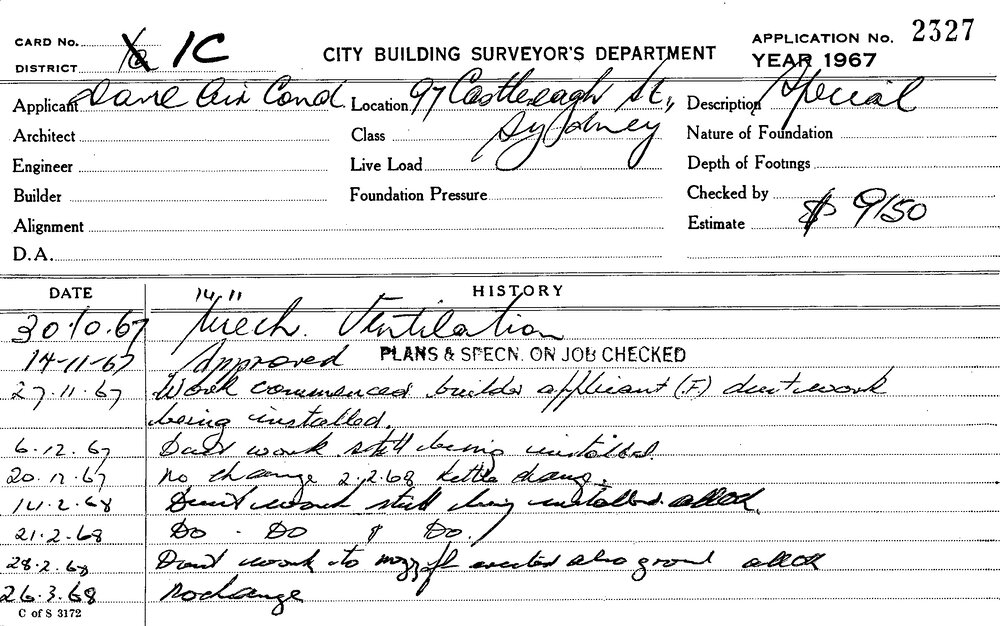 CARD No. 1C
DISTRICT
CITY BUILDING SURVEYOR'S DEPARTMENT
APPLICATION No. 2327
YEAR 1967
Applicant Air Cond. Location 97 Castlereagh St., Description Special
Architect Class Sydney Nature of Foundation
Engineer Live Load Depth of Footings
Builder Foundation Pressure Checked by
Alignment Estimate $ 9150
D.A.
DATE 14/11 HISTORY
30.10.67 Mech. Ventilation
14-11-67 Approved PLANS & SPECN. ON JOB CHECKED
27.11.67 Work commenced builder applicant (F) duct work
being installed.
6.12.67 Duct work still being installed.
20.12.67 No change 2.2.68 little change.
14.2.68 Duct work still being installed.
21.2.68 Do - Do Do.
28.2.68 Duct work to erected also ground
26.3.68 No change
C of S 3172